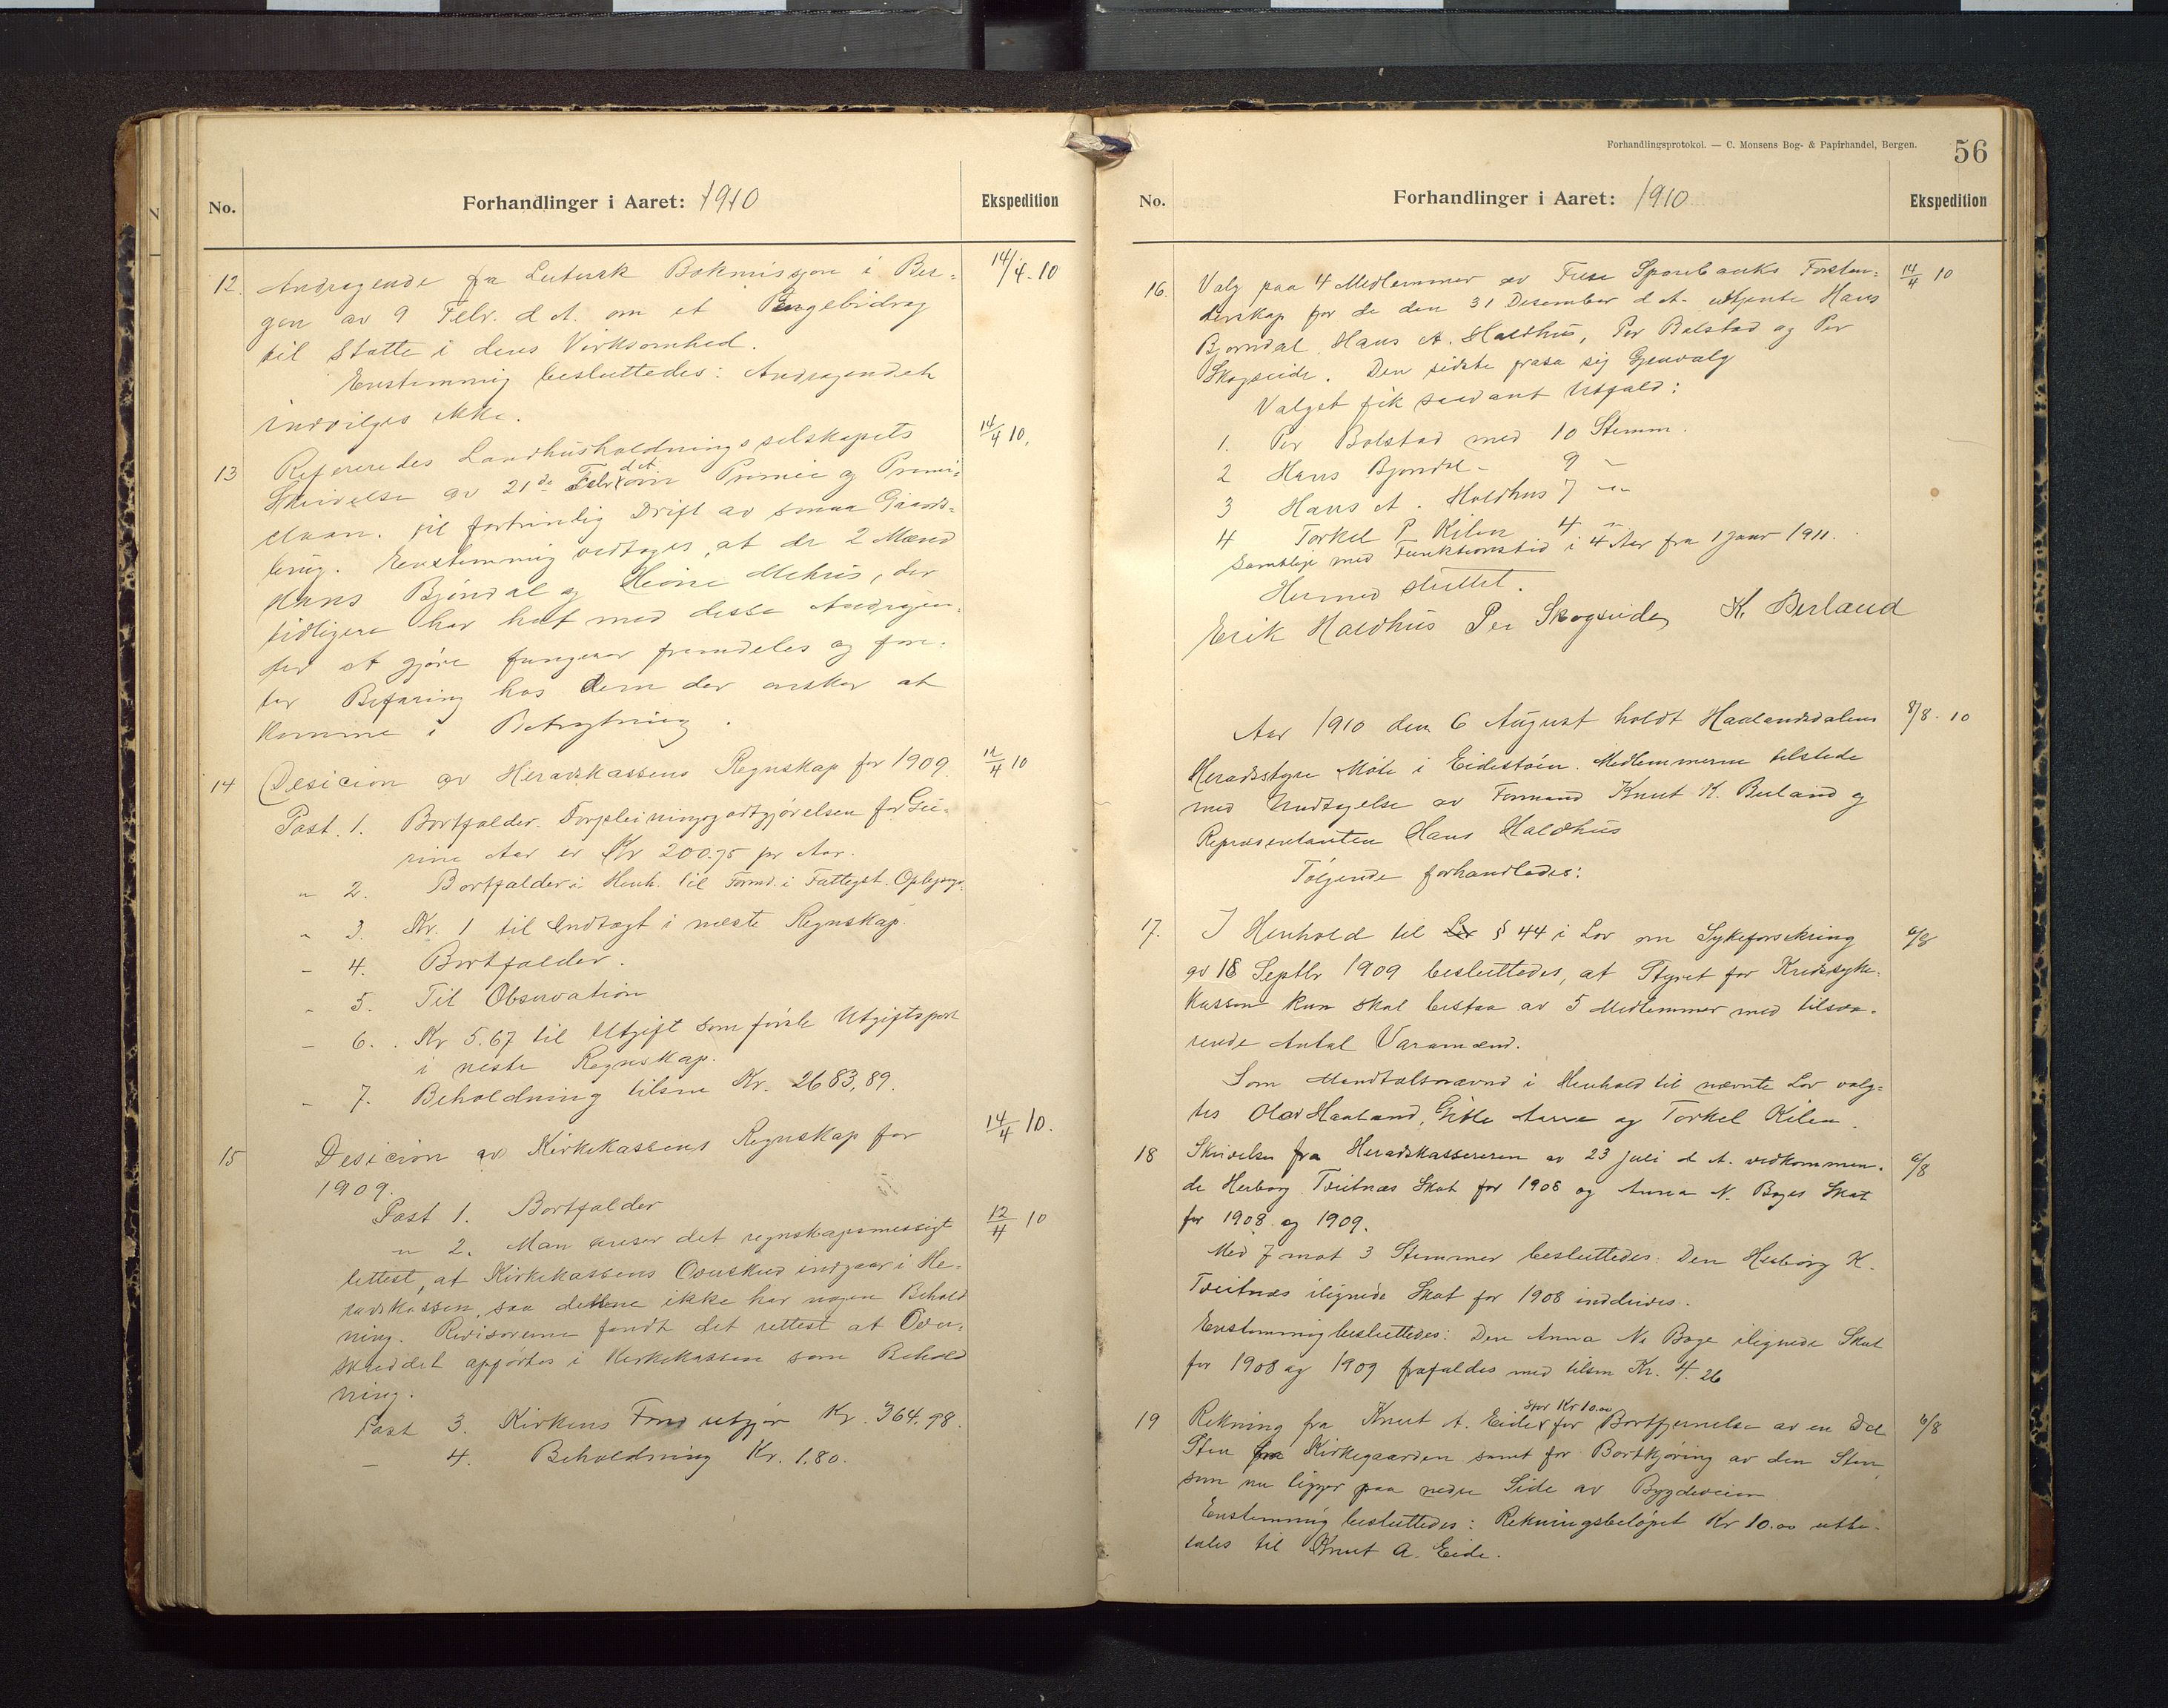 No.
Forhandlinger i Aaret: 1910
Ekspedition
12. Andragende fra Lutersk Bokmissjon i Ber-
14/4-10
gen av 9 Febr. d A. om et Pengebidrag
til Støtte i deres Virksomhed.
Enstemmig besluttedes: Andragendet
indvilges ikke.
13 Refereredes Landhusholdningsselskapets
14/4 10.
Skrivelse av 21de Febr d.A. om Premie og Premi-
elaan til fortrinlig Drift av smaa Gaards-
brug. Enstemmig vedtages, at de 2 Mænd
Hans Bjørndal og Heine Mehus, der
tidligere har hat med disse Andragen-
der at gjøre fungerer fremdeles og fore-
tar Befaring hos dem der ønsker at
komme i Betragtning.
14 Desicion av Heradskassens Regnskap for 1909
14/4 10
Post. 1. Bortfalder. Forpleiningsgodtgjørelsen for Gu-
rine Aar er Kr 200.75 pr Aar.
" 2. Bortfalder i Henh. til Formd. i Fattigst. Oplysng.
" 3. Kr. 1 til Indtægt i næste Regnskap.
- 4. Bortfalder.
" 5. Til Observation
- 6. Kr 5.67 til Utgift som første Utgiftspost
i neste Regnskap.
- 7. Beholdning tilsm Kr. 2683,89.
15 Desicion av Kirkekassens Regnskap for
14/4 10.
1909.
Post 1. Bortfalder
" 2. Man anser det regnskapsmessigt
12/4 10
lettest, at Kirkekassens Overskud indgaar i He-
radskassen, saa denne ikke har nogen Behold
ning. Revisorerne fandt det rettest at Over-
skuddet opførtes i Kirkekassen som Behold
ning.
Post 3. Kirkens Fond utgjør Kr. 364.98.
- 4. Beholdning Kr. 1.80.
Forhandlingsprotokol. — C. Monsens Bog- & Papirhandel, Bergen.
56
No.
Forhandlinger i Aaret: 1910
Ekspedition
16. Valg paa 4 Medlemmer av Fuse Sparebanks Forstan-
14/4 10
derskap for de den 31 Desember d A. uttjente Hans
Bjørndal, Hans A. Holdhus, Per Bolstad og Per
Skogseide. Den sidste frasa sig Gjenvalg
Valget fik saadant Utfald:
1. Per Bolstad med 10 Stemm.
2 Hans Bjørndal - 9 -
3 Hans A. Holdhus 7 -"-
4 Torkel P Kilen 4 "
Samtlige med Funktionstid i 4 Aar fra 1 Janr 1911.
Hermed sluttet.
Erik Holdhus Per Skogseide K. Berland
Aar 1910 den 6 August holdt Haalandsdalens
8/8. 10
Heradsstyre Møte i Eidestøen. Medlemmerne tilstede
med Undtagelse av Formand Knut K. Berland og
Repræsentanten Hans Holdhus
Følgende forhandledes:
17. I Henhold til Lov § 44 i Lov om Sykeforsikring
6/8
av 18 Septbr 1909 besluttedes, at Styret for Kredssyke-
kassen kun skal bestaa av 5 Medlemmer med tilsva-
rende Antal Varamænd.
Som Mandtalsnævnd i Henhold til nævnte Lov valg-
tes Olav Haaland, Gitle Aarra og Torkel Kilen.
18 Skrivelse fra Heradskassereren av 23 Juli d A. vedkommen-
6/8
de Herborg Tveitnæs Skat for 1908 og Anna N. Boges Skat
for 1908 og 1909.
Med 7 mot 3 Stemmer besluttedes: Den Herborg K.
Tveitnæs ilignede Skat for 1908 inddrives.
Enstemmig besluttedes: Den Anna N. Boge ilignede Skat
for 1908 og 1909 frafaldes med tilsm Kr. 4.26
19 Rekning fra Knut A. Eide stor Kr 10.00 for Bortfjernelse av en Del
6/8
Sten fra Kirkegaarden samt for Bortkjøring av den Sten
som nu ligger paa nedre Side av Bygdeveien
Enstemmig besluttedes: Rekningsbeløpet Kr 10.00 utbe-
tales til Knut A. Eide.